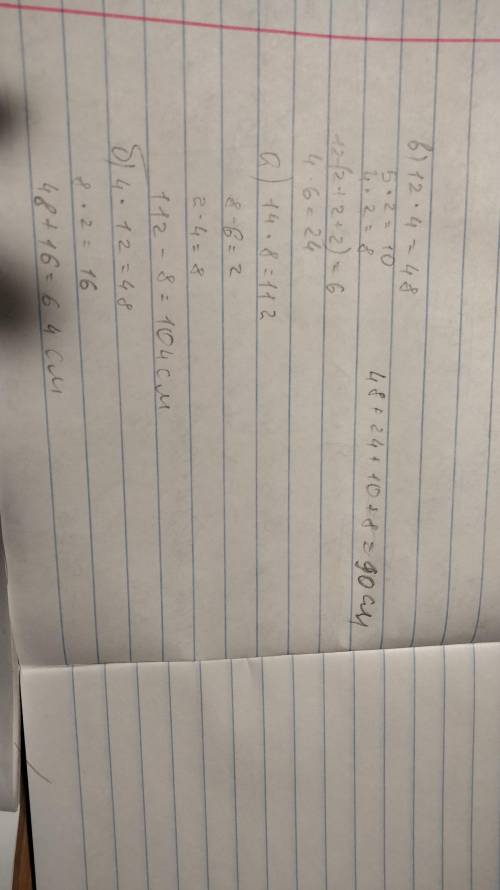 в) 12 · 4 = 48
5 · 2 = 10
4 · 2 = 8
12-(2+2+2) = 6
4 · 6 = 24
48 + 24 + 10 + 8 = 90 см
а) 14 · 8 = 112
8 - 6 = 2
2 · 4 = 8
112 - 8 = 104 см
б) 4 · 12 = 48
8 · 2 = 16
48 + 16 = 64 см